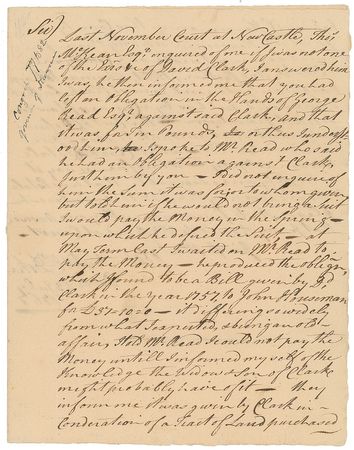 Sir/
Last November Court at NewCastle, Tho.s
McKean Esq.r enquired of me if I was not one
of the Exors of David Clark, I answered him
I was, he then informed me that you had
left an Obligation in the Hands of George
Read Esq.r against said Clark, and that
it was for Ten Pounds, or thus I understood
him, I spoke to Mr. Read who said
he had an Obligation against Clark,
put him by you — I did not enquire of
him the Sum it was for or to whom given
but told him if he would not bring a suit
I wou'd pay the Money in the Spring —
upon which he defered the Suit — at
May Term last I waited on Mr. Read to
pay the Money — he produced the oblign.
which I found to be a Bill given by sd.
Clark in the Year 1757 to John
for £37-10-0 — it differing so widely
from what I expected, & being an old
affair, I told Mr. Read I could not pay the
Money untill I informed my self of the
Knowledge the Widow & Son of Clark
might probably have of it — they
inform me it was given by Clark in
Consideration of a Tract of Land purchased